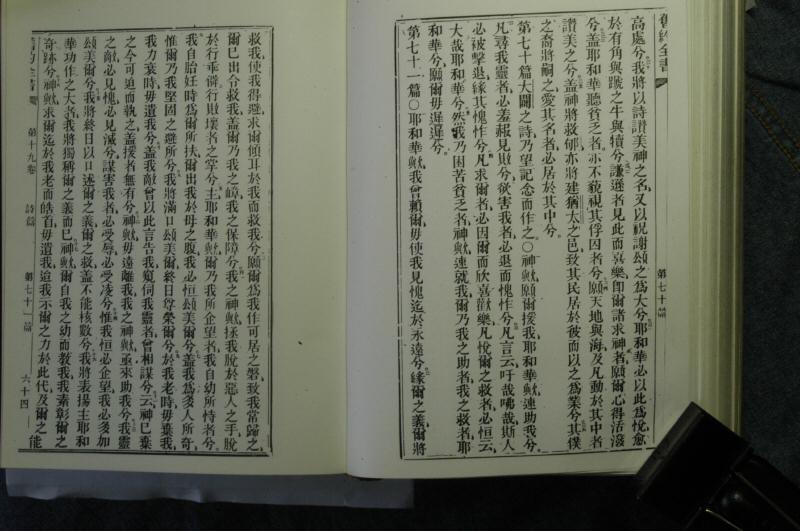 舊約全書
第七十篇
高處兮我將以詩讚美神之名又以祝謝頌之爲大兮耶和華必以此爲悅愈
於有角與蹏之牛與犢兮謙遜者見此而喜樂卽爾諸求神者願爾心得活潑
兮蓋耶和華聽貧乏者亦不藐視其俘囚者兮願天地與海及凡動於其中者
讚美之兮蓋神將救郇亦將建猶太之邑致其民居於彼而以之爲業兮其僕
之裔將嗣之愛其名者必居於其中兮
第七十篇大闢之詩乃望記念而作之〇神歟願爾援我耶和華歟速助我兮
凡尋我靈者必羞赧見敗兮從害我者必退而愧怍兮凡言云吁哉咈哉斯人
必被擊退緣其愧怍兮凡求爾者必因爾而欣喜歡樂凡悅爾之救者必恒云
大哉耶和華兮然我乃困苦貧乏者神歟速就我爾乃我之助者我之救者耶
和華兮願爾毋遲遲兮
第七十一篇〇耶和華歟我曾賴爾毋使我見愧迄於永遠兮緣爾之義爾將
救我使我得避求爾傾耳於我而救我兮願爾爲我作可居之磐致我當歸之
爾已出令救我蓋爾乃我之嶂我之保障兮我之神歟拯我脫於惡人之手脫
於行乖謬行敗壞者之掌兮主耶和華歟爾乃我所企望者我自幼所恃者兮
我自胎妊時爲爾所扶爾出我於母之腹我必恒頌美爾兮蓋我爲多人所奇
惟爾乃我堅固之避所兮我將滿口頌美爾終日尊榮爾兮於我老時毋棄我
我力衰時毋遺我兮蓋我敵曾以此言告我窺伺我靈者曾相謀兮云神已棄
之今可迫而執之蓋援者無有兮神歟毋遠離我我之神歟亟來助我兮我靈
之敵必見愧必見滅兮謀害我者必受辱必受凌兮惟我恒必企望我必多加
頌美爾兮我將終日以口述爾之義爾之救蓋不能核數兮我將表揚主耶和
華功作之大者我將獨稱爾之義而已神歟爾自我之幼而教我我素彰爾之
奇跡兮神歟求爾迄於我老而皓首毋遺我迨我示爾之力於此代及爾之能
第十九卷
詩篇
第七十一篇
六十四